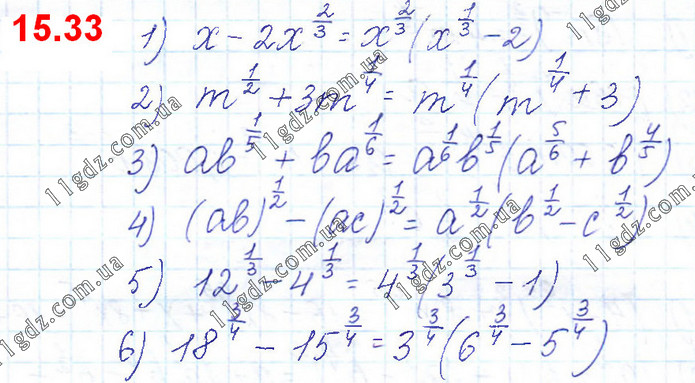 15.33
1) x - 2x^{2/3} = x^{2/3}(x^{1/3} - 2)
2) m^{1/2} + 3m^{1/4} = m^{1/4}(m^{1/4} + 3)
3) ab^{1/5} + ba^{1/6} = a^{1/6}b^{1/5}(a^{5/6} + b^{4/5})
4) (ab)^{1/2} - (ac)^{1/2} = a^{1/2}(b^{1/2} - c^{1/2})
5) 12^{1/3} - 4^{1/3} = 4^{1/3}(3^{1/3} - 1)
6) 18^{3/4} - 15^{3/4} = 3^{3/4}(6^{3/4} - 5^{3/4})
11gdz.com.ua
11gdz.com.ua
11gdz.com.ua
11gdz.com.ua
11gdz.com.ua
11gdz.com.ua